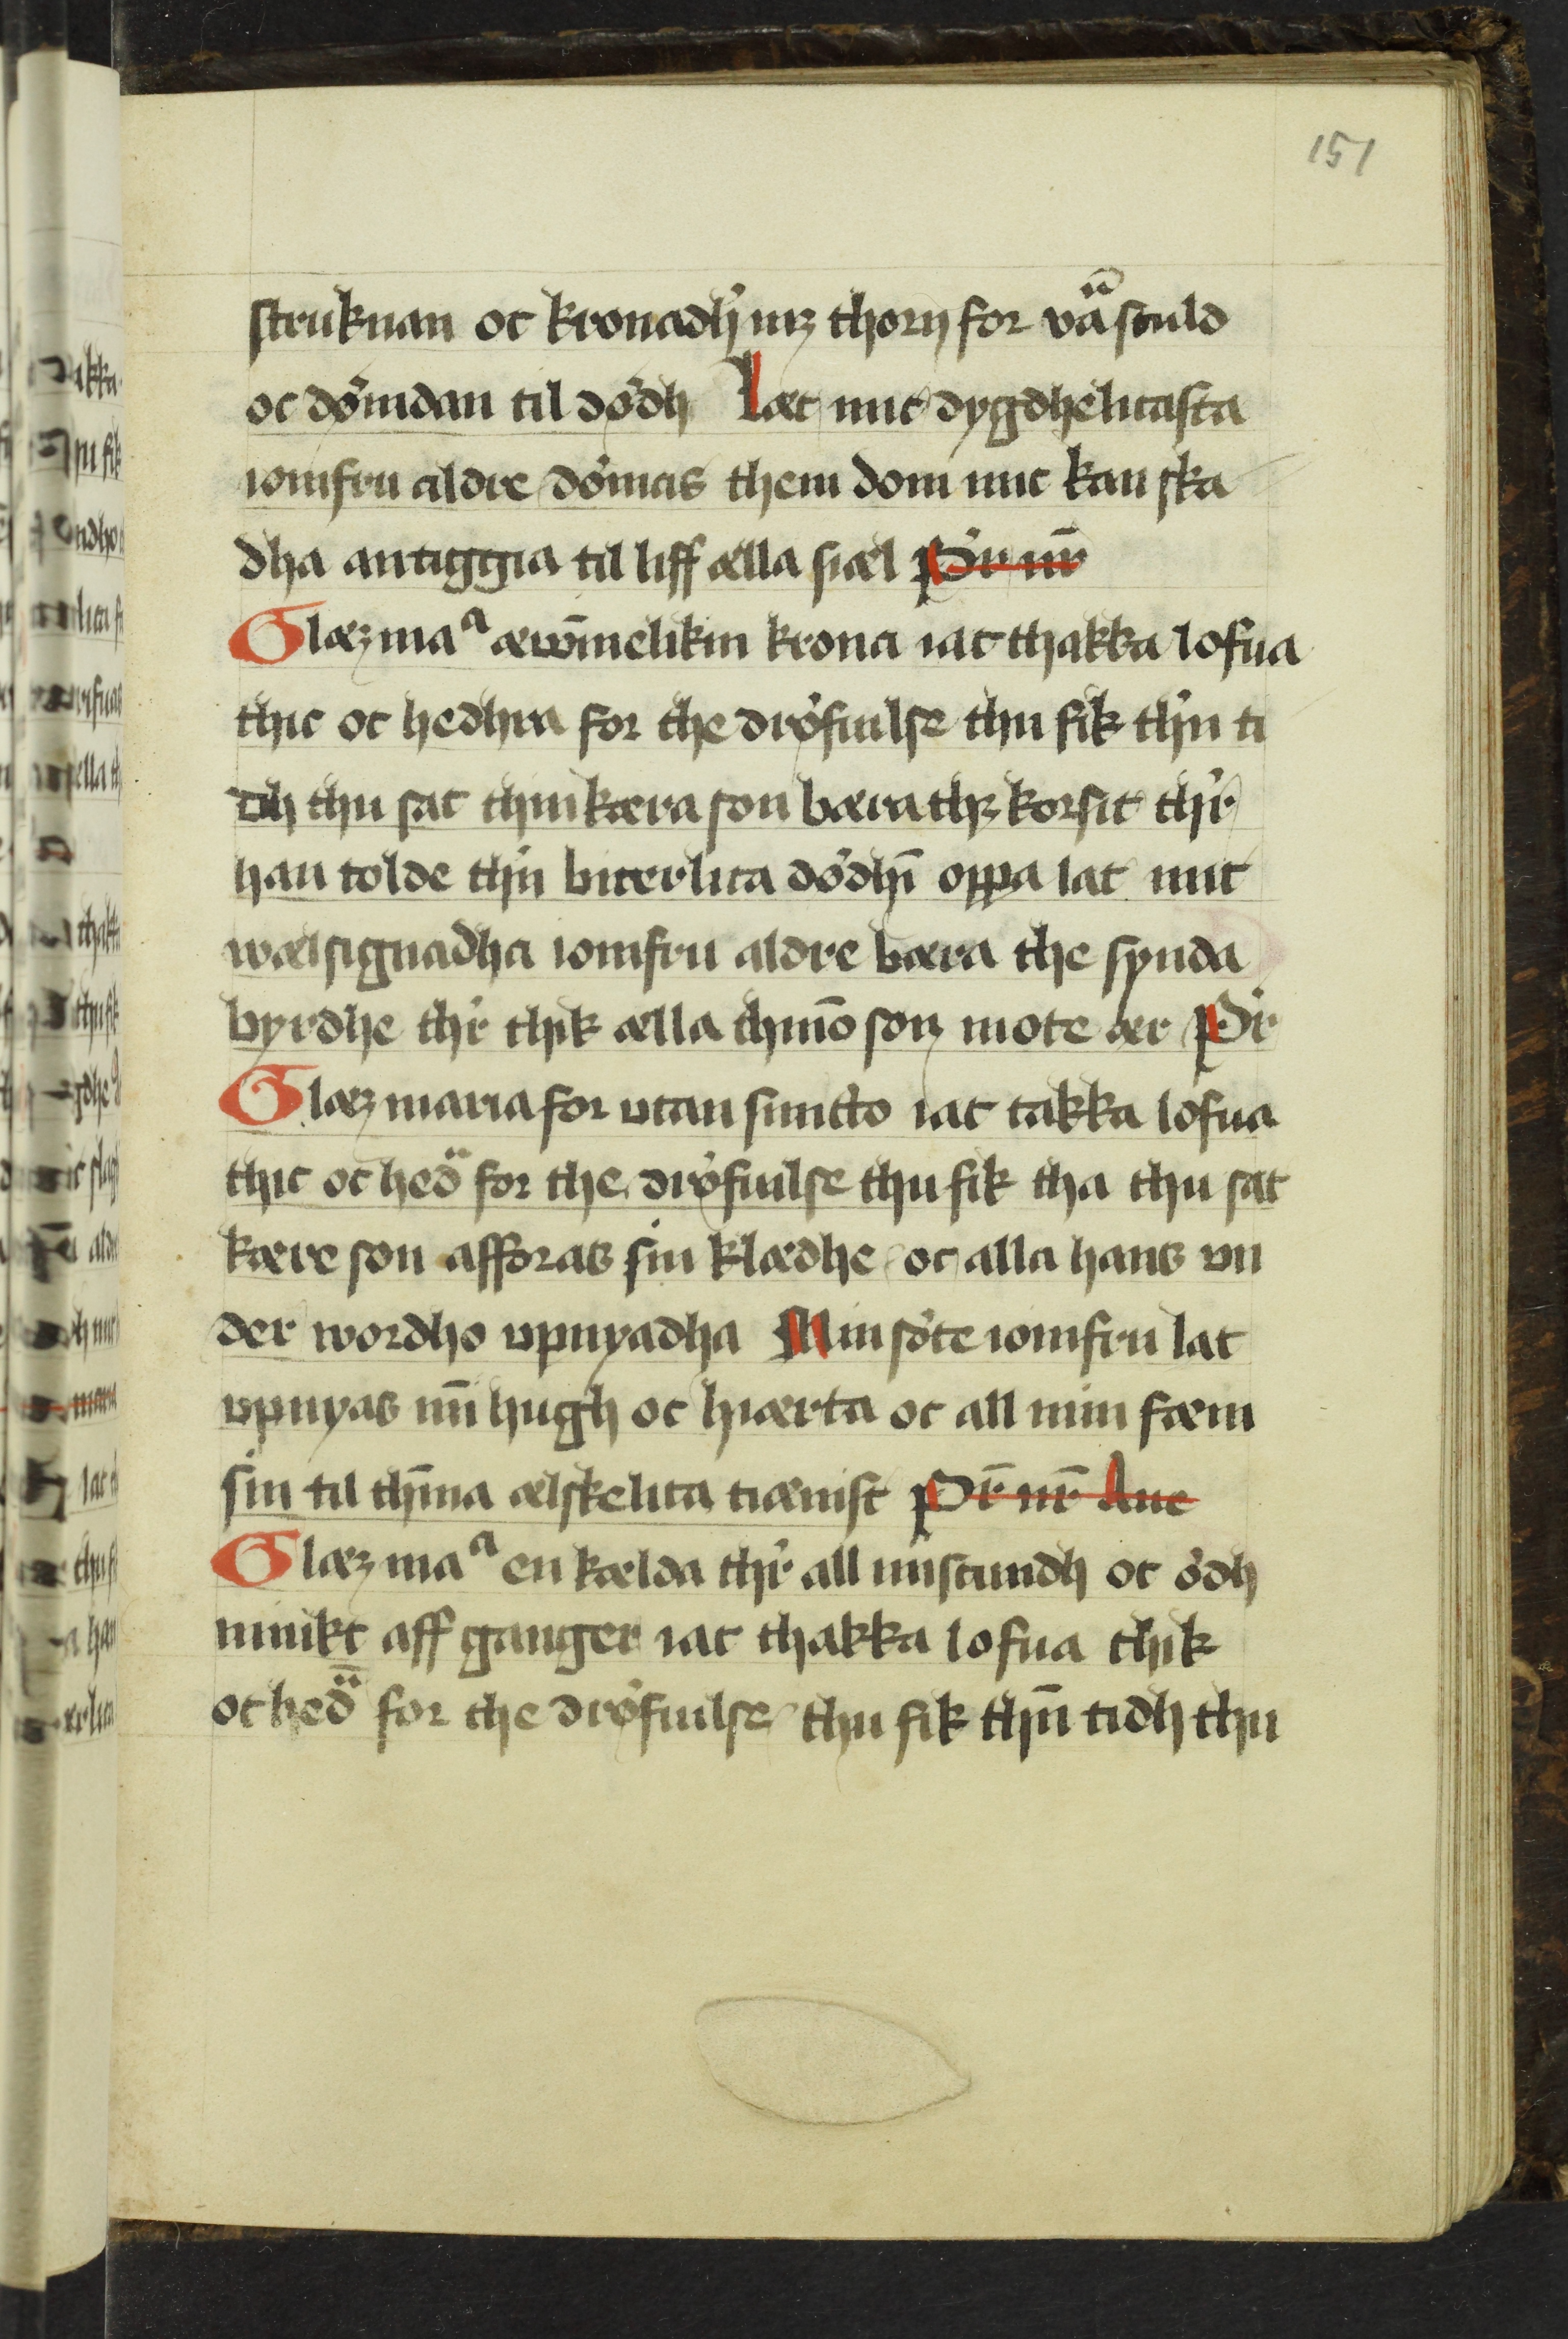 151
struknan oc kronadh mz thorn for vaͣ sculd
oc dømdan til dødh Læt mic dygdhelicasta
iomfru aldre dømas them dom mic kan ska
dha antiggia til liff ælla siæl Pr nr̄
Glæz maᵃ æwīnelikin krona iac thakka lofua
thic oc hedhra for the drøfuilse thu fik thn ti
dh thu sat thin kæra son bæra thz korsit thr
han tolde thn biterlica dødhī oppa lat mic
wælsignadha iomfru aldre bæra the synda
byrdhe thr thik ælla thino son mote ær Pr
Glæz maria for utan smitto iac takka lofua
thic oc hedͣ for the drøfuilse thu fik tha thu sat
kære son afforas sin klædhe oc alla hans vn
der wordho vpnyadha Min søte iomfru lat
vpnyas mī hugh oc hiærta oc all min fæm
sin til thīna ælskelica tiænist Pr̄ nr̄ Aue
Glæz maᵃ en kælda thr all miscundh oc ødh
miukt aff ganger iac thakka lofua thik
oc hedͣ for the drøfuilse thu fik thn̄ tidh thu